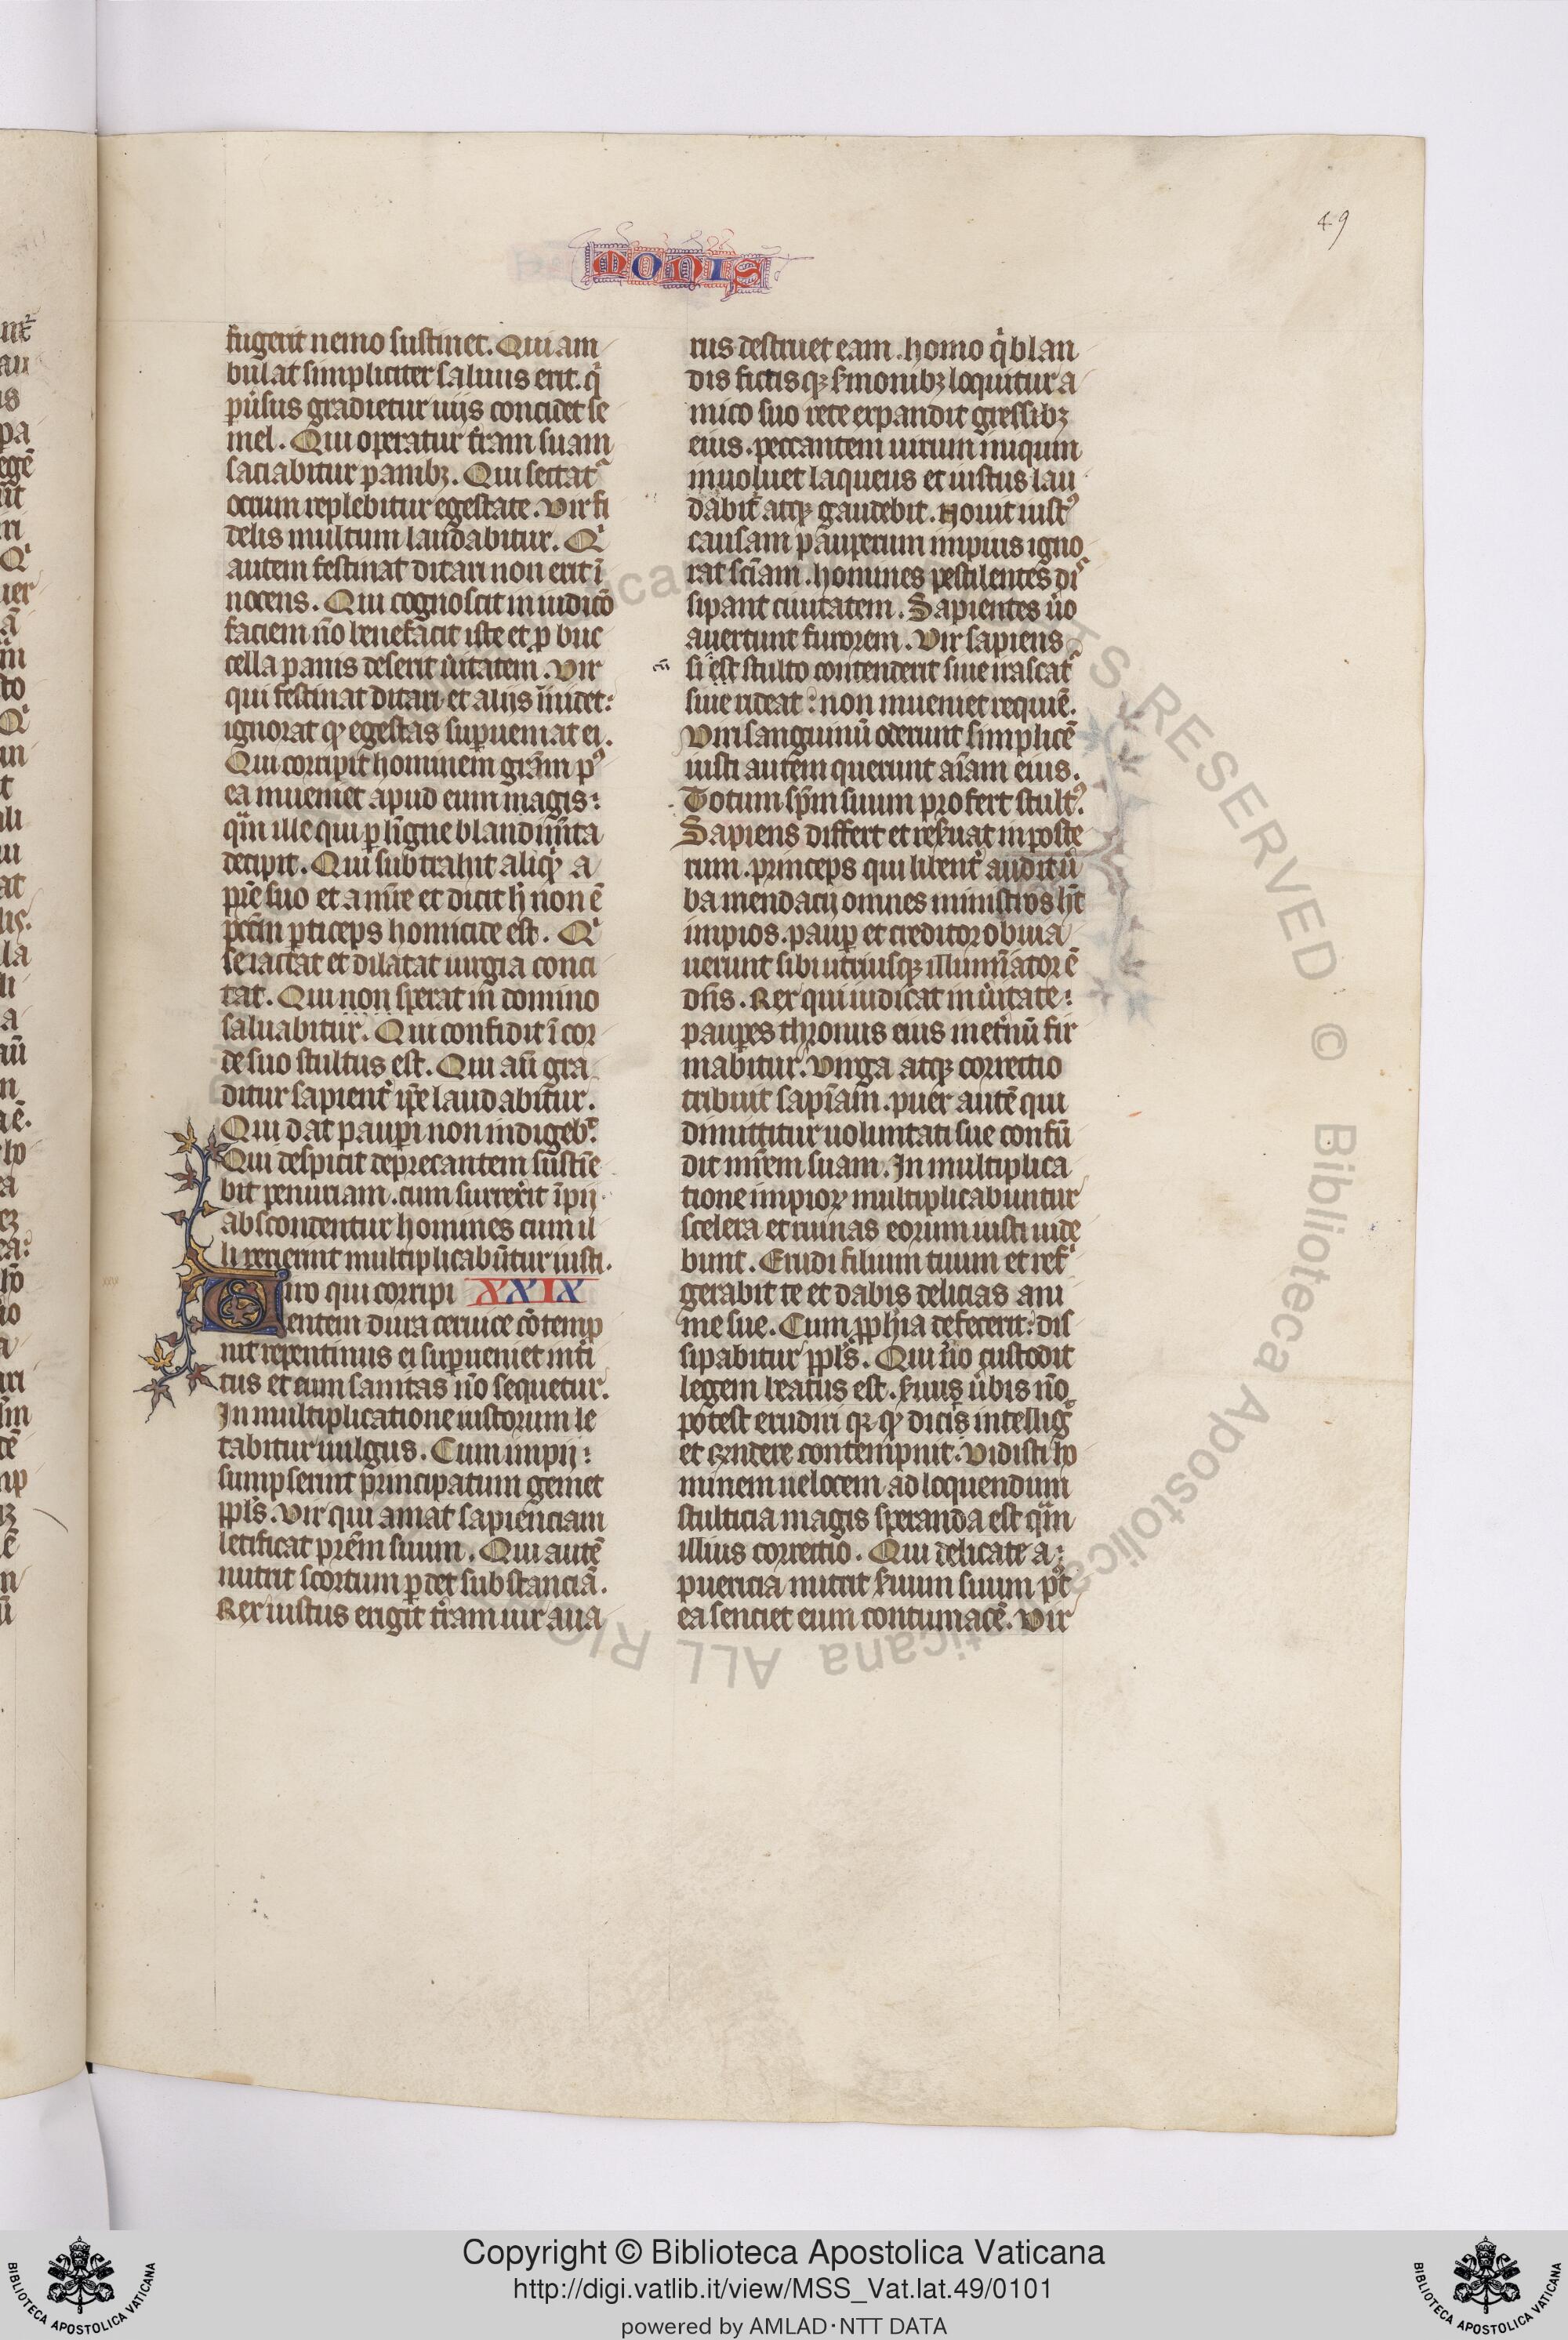 49
MONIS
fugerit nemo sustinet. Qui am
bulat simpliciter saluus erit. qͥ
ꝑuͥsus gradietur uijs concidet se
mel. Qui operatur tͥram suam
saciabitur panibꝫ. Qui sectatᷣ
ocium replebitur egestate. Vir fi
delis multum laudabitur. Qͥ
autem festinat ditari non erit ī
nocens. Qui cognoscit in iudicō
faciem nō benefacit iste et ꝓ buc
cella panis deserit ūitatem. Vir
qui festinat ditari et aliis īuidet:
ignorat ꝙ egestas suꝑueniat ei.
Qui corripit hominem grām pꝰ
ea inueniet apud eum magis:
qͣm ille qui ꝑ līgue blandimīta
decipit. Qui subtrahit aliqͥꝙ a
pr̄e suo et a mr̄e et dicit hͦ non ē
pcc̄m ꝑticeps homicide est. Qͥ
se iactat et dilatat iurgia conci
tat. Qui non sperat in domino
saluabitur. Qui confidit ī cor
de suo stultus est. Qui aūt gra
ditur sapientͥ ip̄e laudabitur.
Qui dat pauꝑi non indigebᷣ.
Qui despicit deprecantem sustīe
bit penuriam. cum surrexͥit īpij
abscondentur homines cum il
li perierint multiplicabūtur iusti.
Viro qui corripi XXIX
entem dura ceruice cōtemp
nit repentinus ei suꝑueniet intͥi
tus et eum sanitas nō sequetur.
In multiplicatione iustorum le
tabitur uulgus. Cum impij:
sumpserint principatum gemet
ppl̄s. Vir qui amat sapienciam
letificat prēm suum. Qui autē
nutrit scortum ꝑdet substanciā.
Rex iustus erigit tͥram uir aua
rus destruet eam. homo qͥ blan
dis fictisqꝫ sͥmonibꝫ loquitur a
mico suo rete expandit gressibꝫ
eius. peccantem uirum iniqum
inuoluet laqueus et iustus lau
dabit atqꝫ gaudebit. Nouit iustꝰ
causam pauperum impius igno
rat sciām. homines pestilentes diſ
sipant ciuitatem. Sapientes ūo
auertunt furorem. Vir sapiens
cū
si est stulto contenderit siue irascatᷣ
siue rideat: non inueniet requiē.
Viri sanguinū oderunt simplicē
iusti autem querunt aīam eius.
Totum spm̄ suum profert stultꝰ.
Sapiens differt et resͥuat in poste
rum. princeps qui libentͥ audit ū
ba mendacij omnes ministros hꝫt
impios. pauꝑ et creditor obuia
uerunt sibi utriusqꝫ illumīator ē
dn̄s. Rex qui iudicat in ūitate:
pauꝑes thronus eius in etͥnū fir
mabitur. Virga atqꝫ correctio
tribuit sapīam. puer autē qui
dimittitur uoluntati sue confū
dit mr̄em suam. In multiplica
tione impioꝝ multiplicabuntur
scelera et ruinas eorum iusti uide
bunt. Erudi filium tuum et refͥ
gerabit te et dabit delicias ani
me sue. Cum ꝓphīa defecerit: dis
sipabitur ppl̄s. Qui ūo custodit
legem beatus est. sͥuus ūbis nō
potest erudiri qꝛ ꝙ dicis intelligͥ
et rn̄dere contempnit. Vidisti ho
minem uelocem ad loquendum
stulticia magis speranda est qͣm
illius correctio. Qui delicate a:
puericia nutrit sͥuum suum pꝰt
ea senciet eum contumacē. Vir
Copyright © Biblioteca Apostolica Vaticana
http://digi.vatlib.it/view/MSS_Vat.lat.49/0101
powered by AMLAD·NTT DATA
BIBLIOTECA APOSTOLICA VATICANA
BIBLIOTECA APOSTOLICA VATICANA